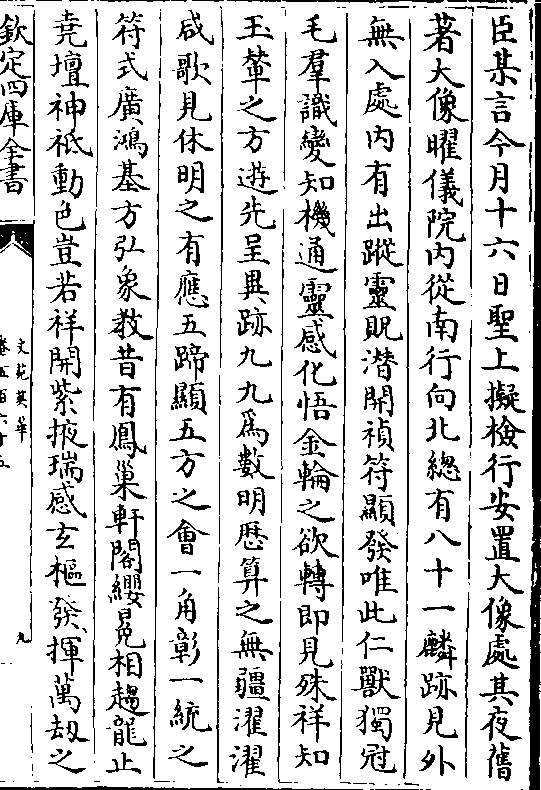 臣某言今月十六日聖上擬檢行安置大像處其夜舊
著大像曜儀院內從南行向北總有八十一麟跡見外
無入處內有出蹤靈貺潛開禎符顯發唯此仁獸獨冠
毛羣識變知機通靈感化悟金輪之欲轉即見殊祥知
玉輦之方遊先呈異跡九九為數明歴算之無疆濯濯
咸歌見休明之有應五蹄顯五方之會一角彰一統之
符式廣鴻基方弘象教昔有鳳巢軒閣纓冕相趨龍止
堯壇神祇動色豈若祥開紫掖瑞感玄樞發揮萬劫之
欽定四庫全書
文苑英華
卷五百六十五
九